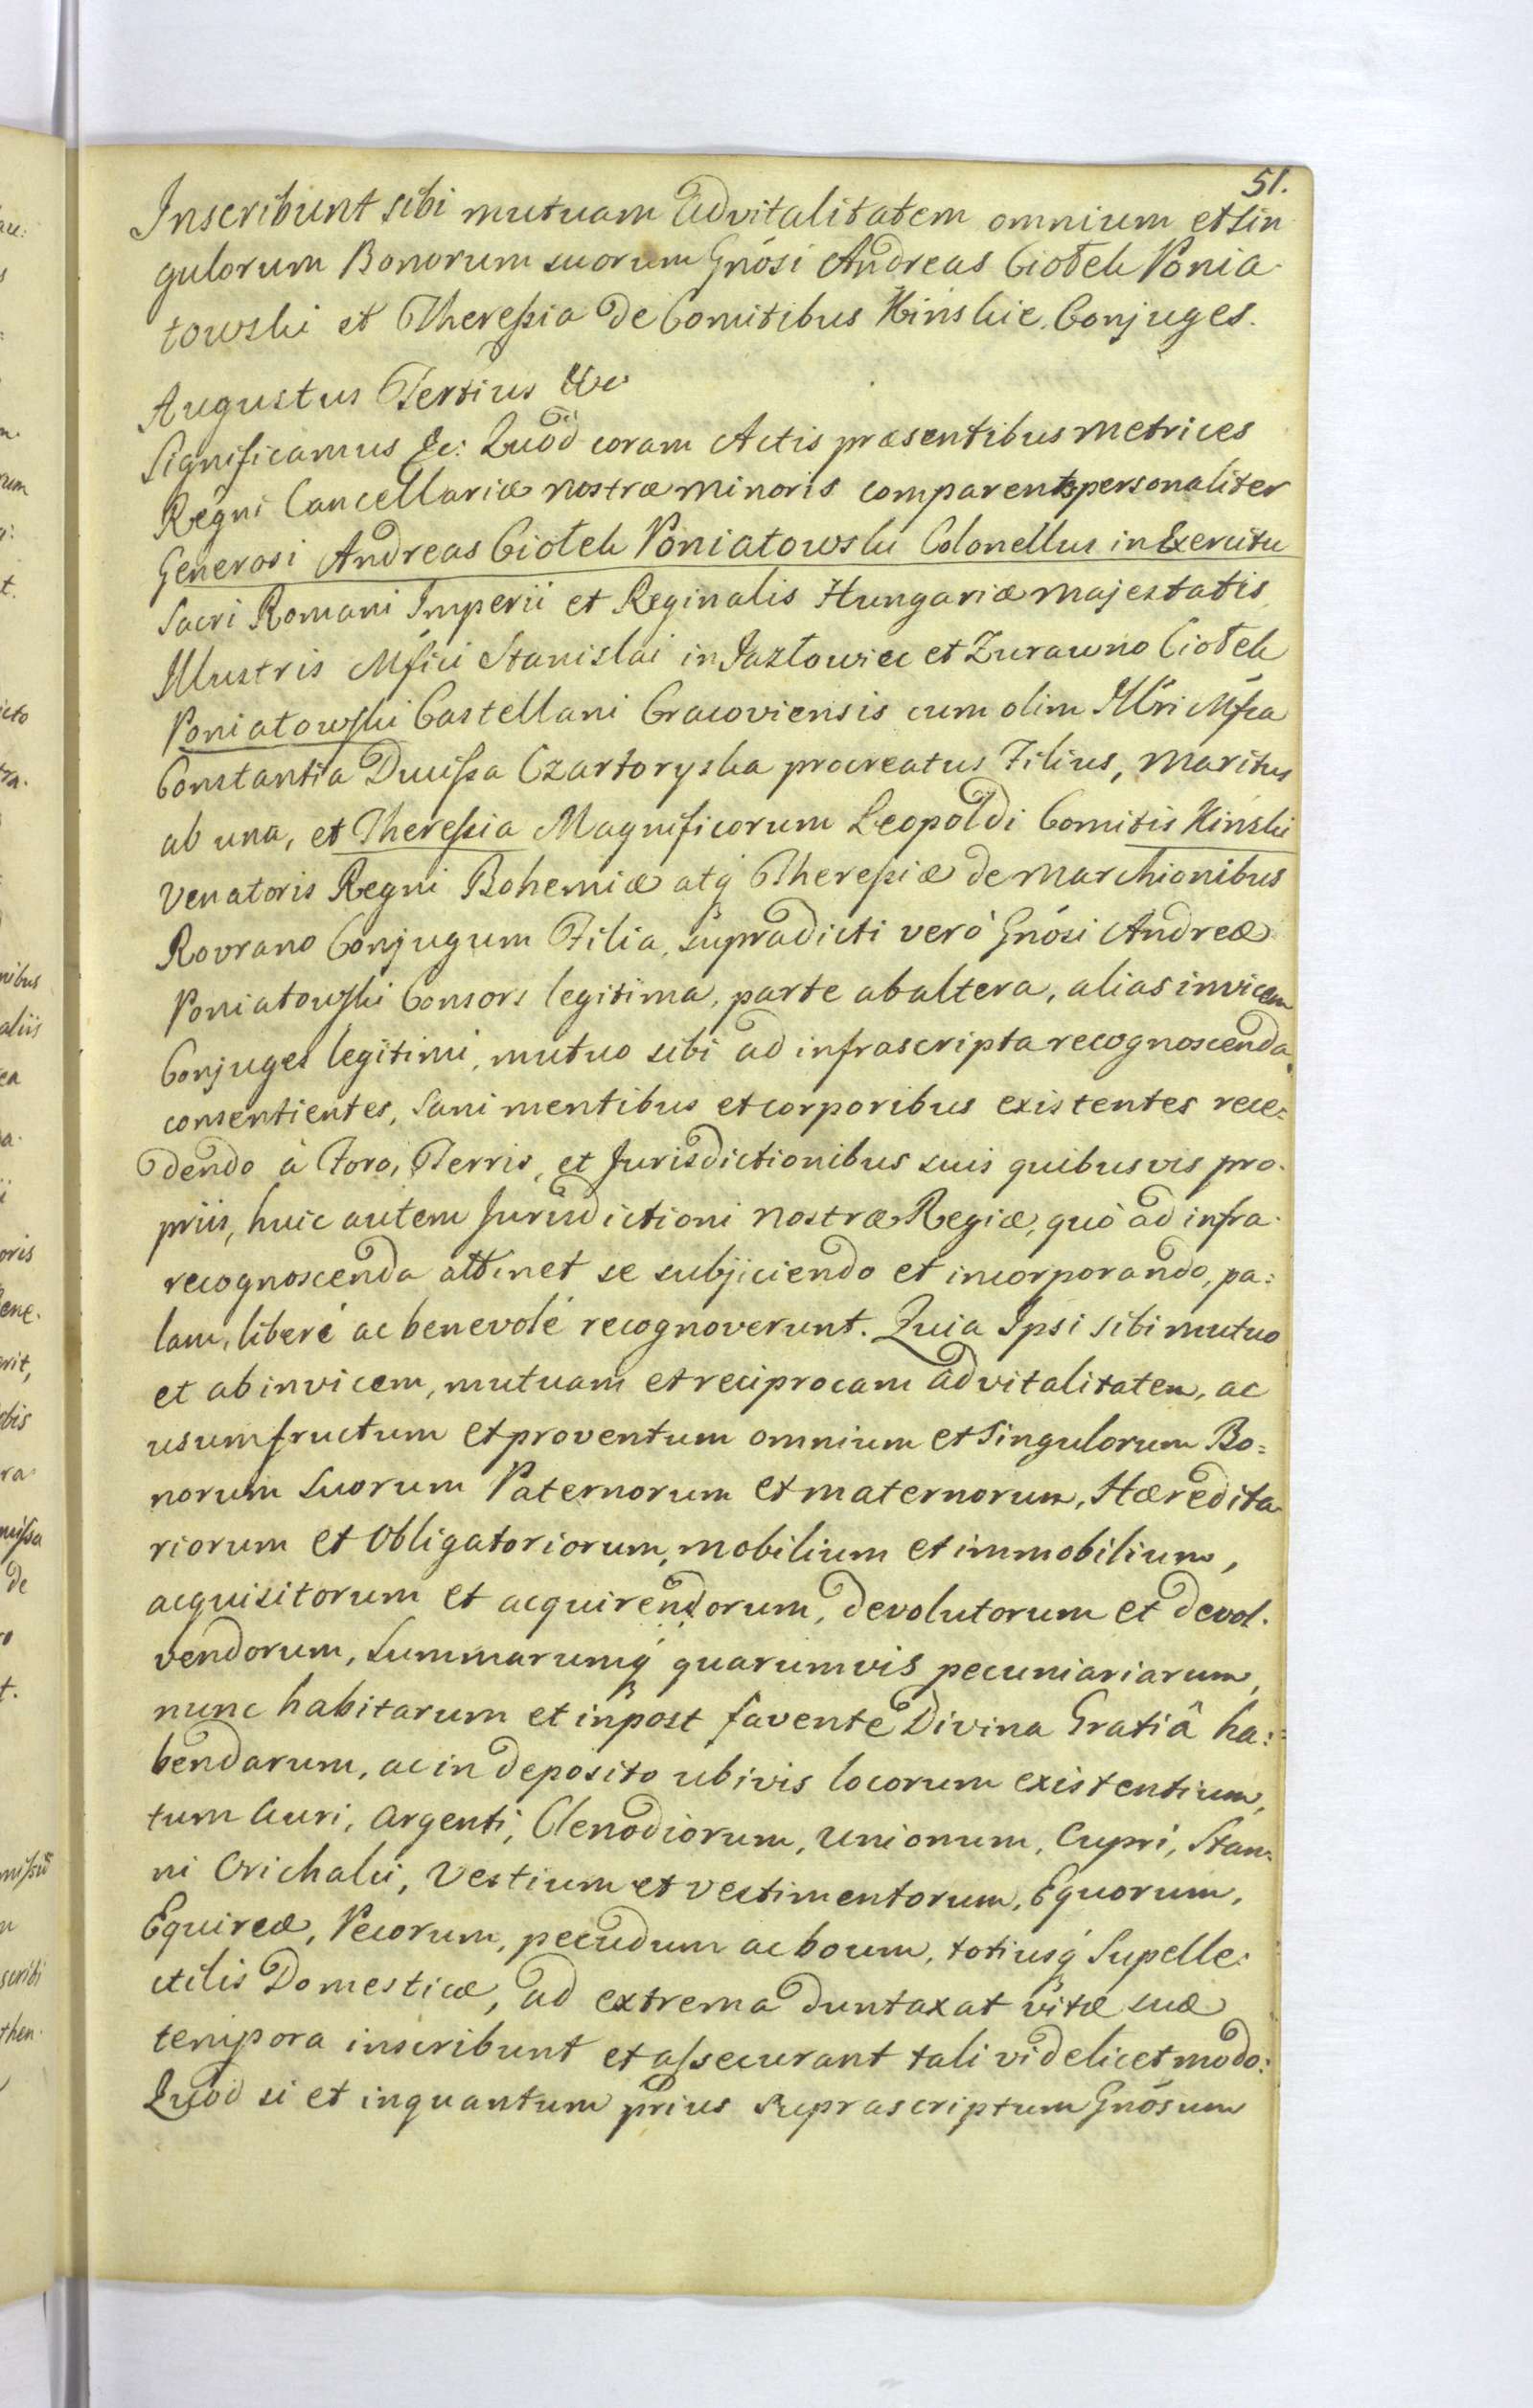 51.
Inscribunt sibi mutuam Advitalitatem omnium et Sin
gulorum Bonorum suorum Gnósi Andreas Ciołek Ponia-
towski et Theressia de Comitibus Kinskie Conjuges.
Augustus Tertius &c
Significamus &c: Quod coram Actis præsentibus Metrices
Regni Cancellariæ nostræ Minoris comparentes personaliter
Generosi Andreas Ciołek Poniatowski Colonellus in Exercitu
Sacri Romani Imperii et Reginalis Hungariæ Majestatis,
Illustris Mfici Stanislai in Jazłowiec et Zurawno Ciołek
Poniatowski Castellani Cracoviensis cum olim Illri Mfca
Constantia Ducissa Czartoryska procreatus Filius, Maritus
ab una, et Theressia Magnificorum Leopoldi Comitis Kinski
Venatoris Regni Bohemiæ atq́ Theressiæ de Marchionibus
Rovrano Conjugum Filia, supradicti verò Gnósi Andreæ
Poniatowski Consors legitima, parte ab altera, alias invicem
Conjuges legitimi, mutuo sibi ad infrascripta recognoscenda
consentientes, Sani mentibus et corporibus existentes rece=
dendo à Foro, Terris, et Jurisdictionibus suis quibusvis pro-
priis, huic autem Jurisdictioni Nostræ Regiæ, quò ad infra-
recognoscenda attinet se subjiciendo et incorporando, pa:
lam, liberé ac benevolé recognoverunt. Quia Ipsi sibi mutuo
et ab invicem, mutuam et reciprocam advitalitatem, ac
usumfructum et proventum omnium et Singulorum Bo=
norum Suorum Paternorum et maternorum, Hæredita
riorum et Obligatoriorum, mobilium et immobilium,
acquisitorum et acquirendorum, devolutorum et devol-
vendorum, Summarumq́ quarumvis pecuniariarum,
nunc habitarum et inpost favente Divina Gratiâ ha:
bendarum, ac in deposito ubivis locorum existentium,
tum Auri, Argenti, Clenodiorum, Unionum, Cupri, Stan-
ni Orichalci, Vestium et vestimentorum, Equorum,
Equireæ, Pecorum, pecudum ac boum, totiusq́ Supelle:
ctilis Domesticæ, ad extrema duntaxat vitæ suæ
tempora inscribunt et assecurant tali videlicet modo:
Quod si et inquantum prius suprascriptum Gnósum